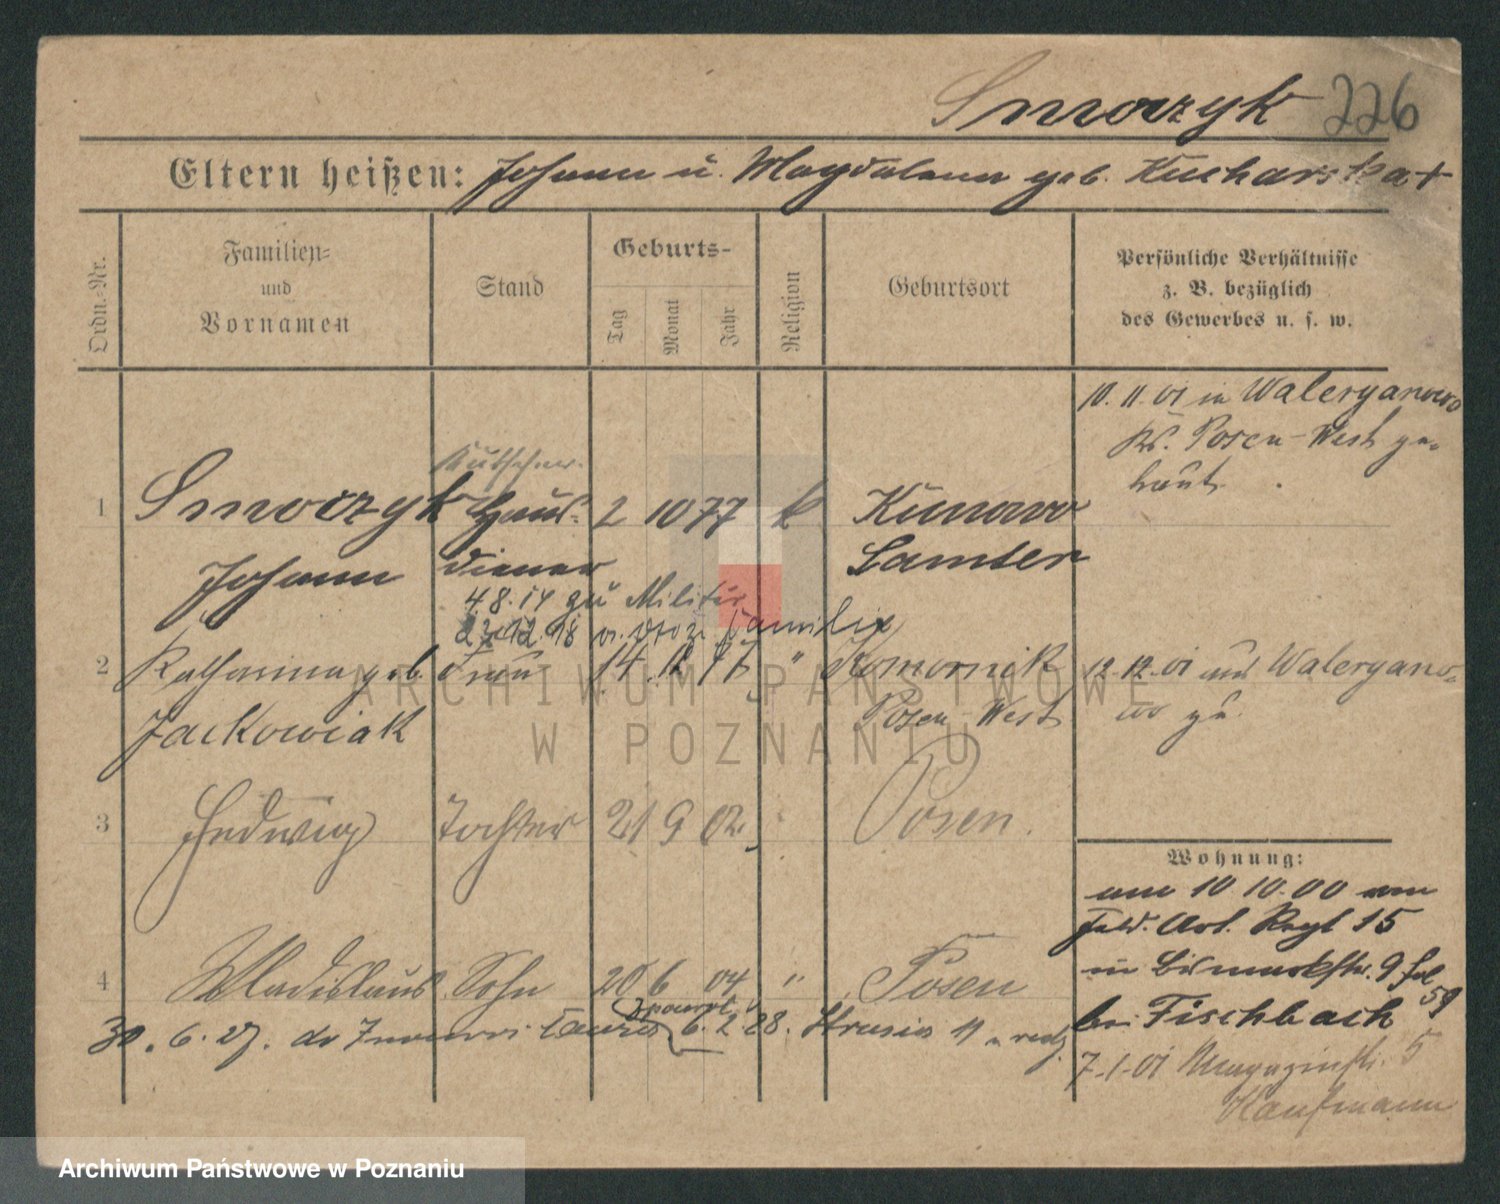 Smoczyk 226
Eltern heißen: Johann u. Magdalena geb. Kucharska +
Ordn.-Nr.
Familien- und Vornamen
Stand
Geburts-
Tag
Monat
Jahr
Religion
Geburtsort
Persönliche Verhältnisse
z. B. bezüglich
des Gewerbes u. s. w.
10. 11. 01 in Waleryanowo
Kr. Posen-West ge-
traut.
Kutscher
1 Smoczyk Haus- 2 10 77 k Kunowo
Johann diener Samter
4.8.14 zu Militär
12.18 Familie
2 Katharina geb. Frau 14. " Komornik 12.12.01 aus Waleryano-
Jackowiak Posen-West wo zu.
3 Hedwig Tochter 21 9 02 Posen.
4 Wladislaus Sohn 20 6 04 " Posen
30. 6. 27. do 6. 2. 28. Strusia 11
Wohnung:
am 10 10.00 vom
Feld. Art. Regt 15
in Bismarckstr. 9
bei Fischbach
7.1.01 Magazinstr. 5
Kaufmann
ARCHIWUM PAŃSTWOWE
W POZNANIU
Archiwum Państwowe w Poznaniu